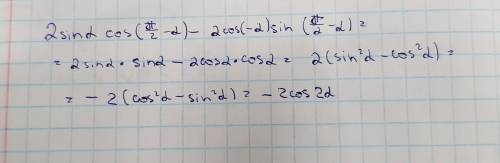 2sinα cos(π/2 - α) - 2cos(-α)sin (π/2 - α) =
= 2sinα · sinα - 2cosα · cosα = 2(sin²α - cos²α) =
= - 2(cos²α - sin²α) = - 2cos2α